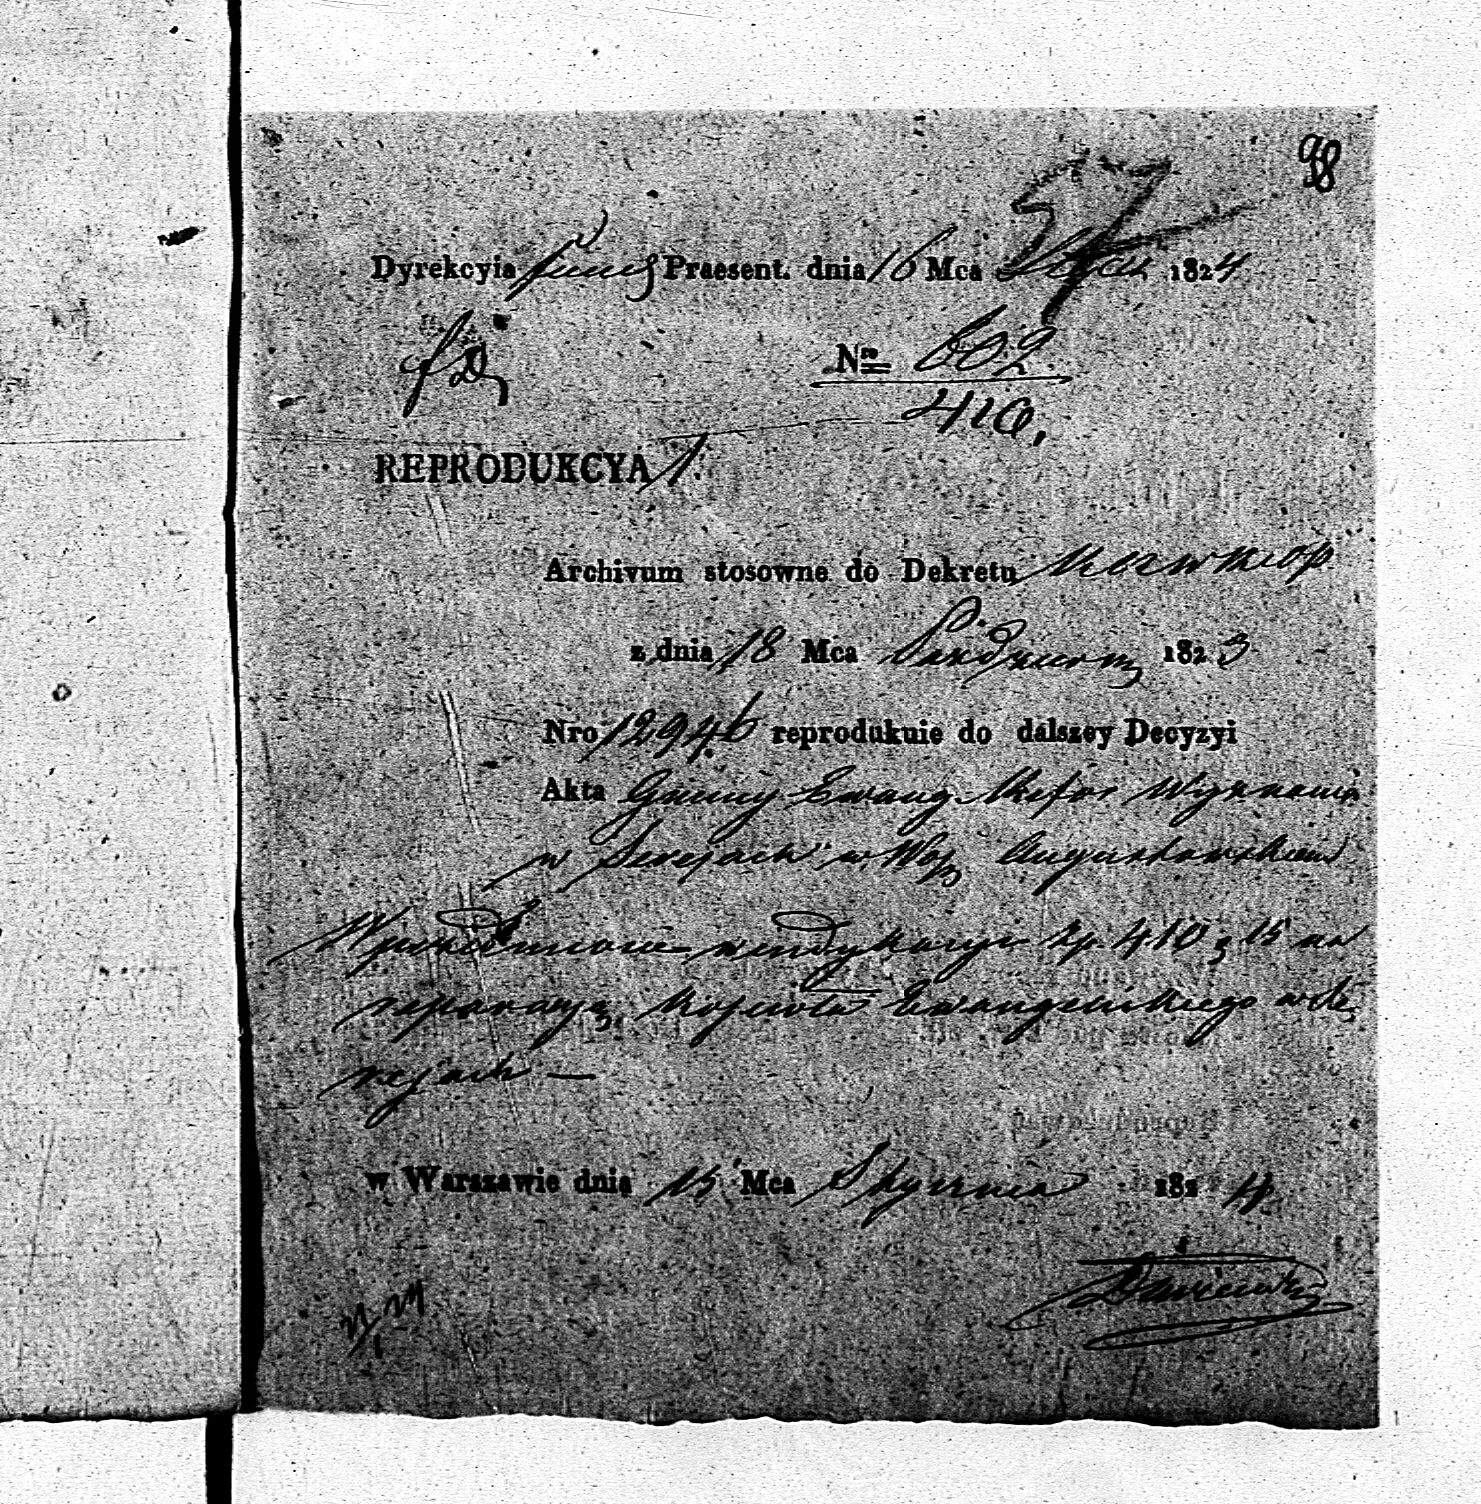 98
57
Dyrekcyia Praesent. dnia 16 Mca Stycz 1824
Nro 602
410.
REPRODUKCYA 1.
Archivum stosowne do Dekretu
z dnia 18 Mca Paździer 1823
Nro 12946 reprodukuie do dalszey Decyzyi
Akta Gminy Ewang Refor Wyznania
w Serejach w Wojz Augustowskiem
zp. 410 z 15 na
reparacyą Kościoła Ewangelickiego w Se
rejach —
w Warszawie dnia 15 Mca Stycznia 1824.